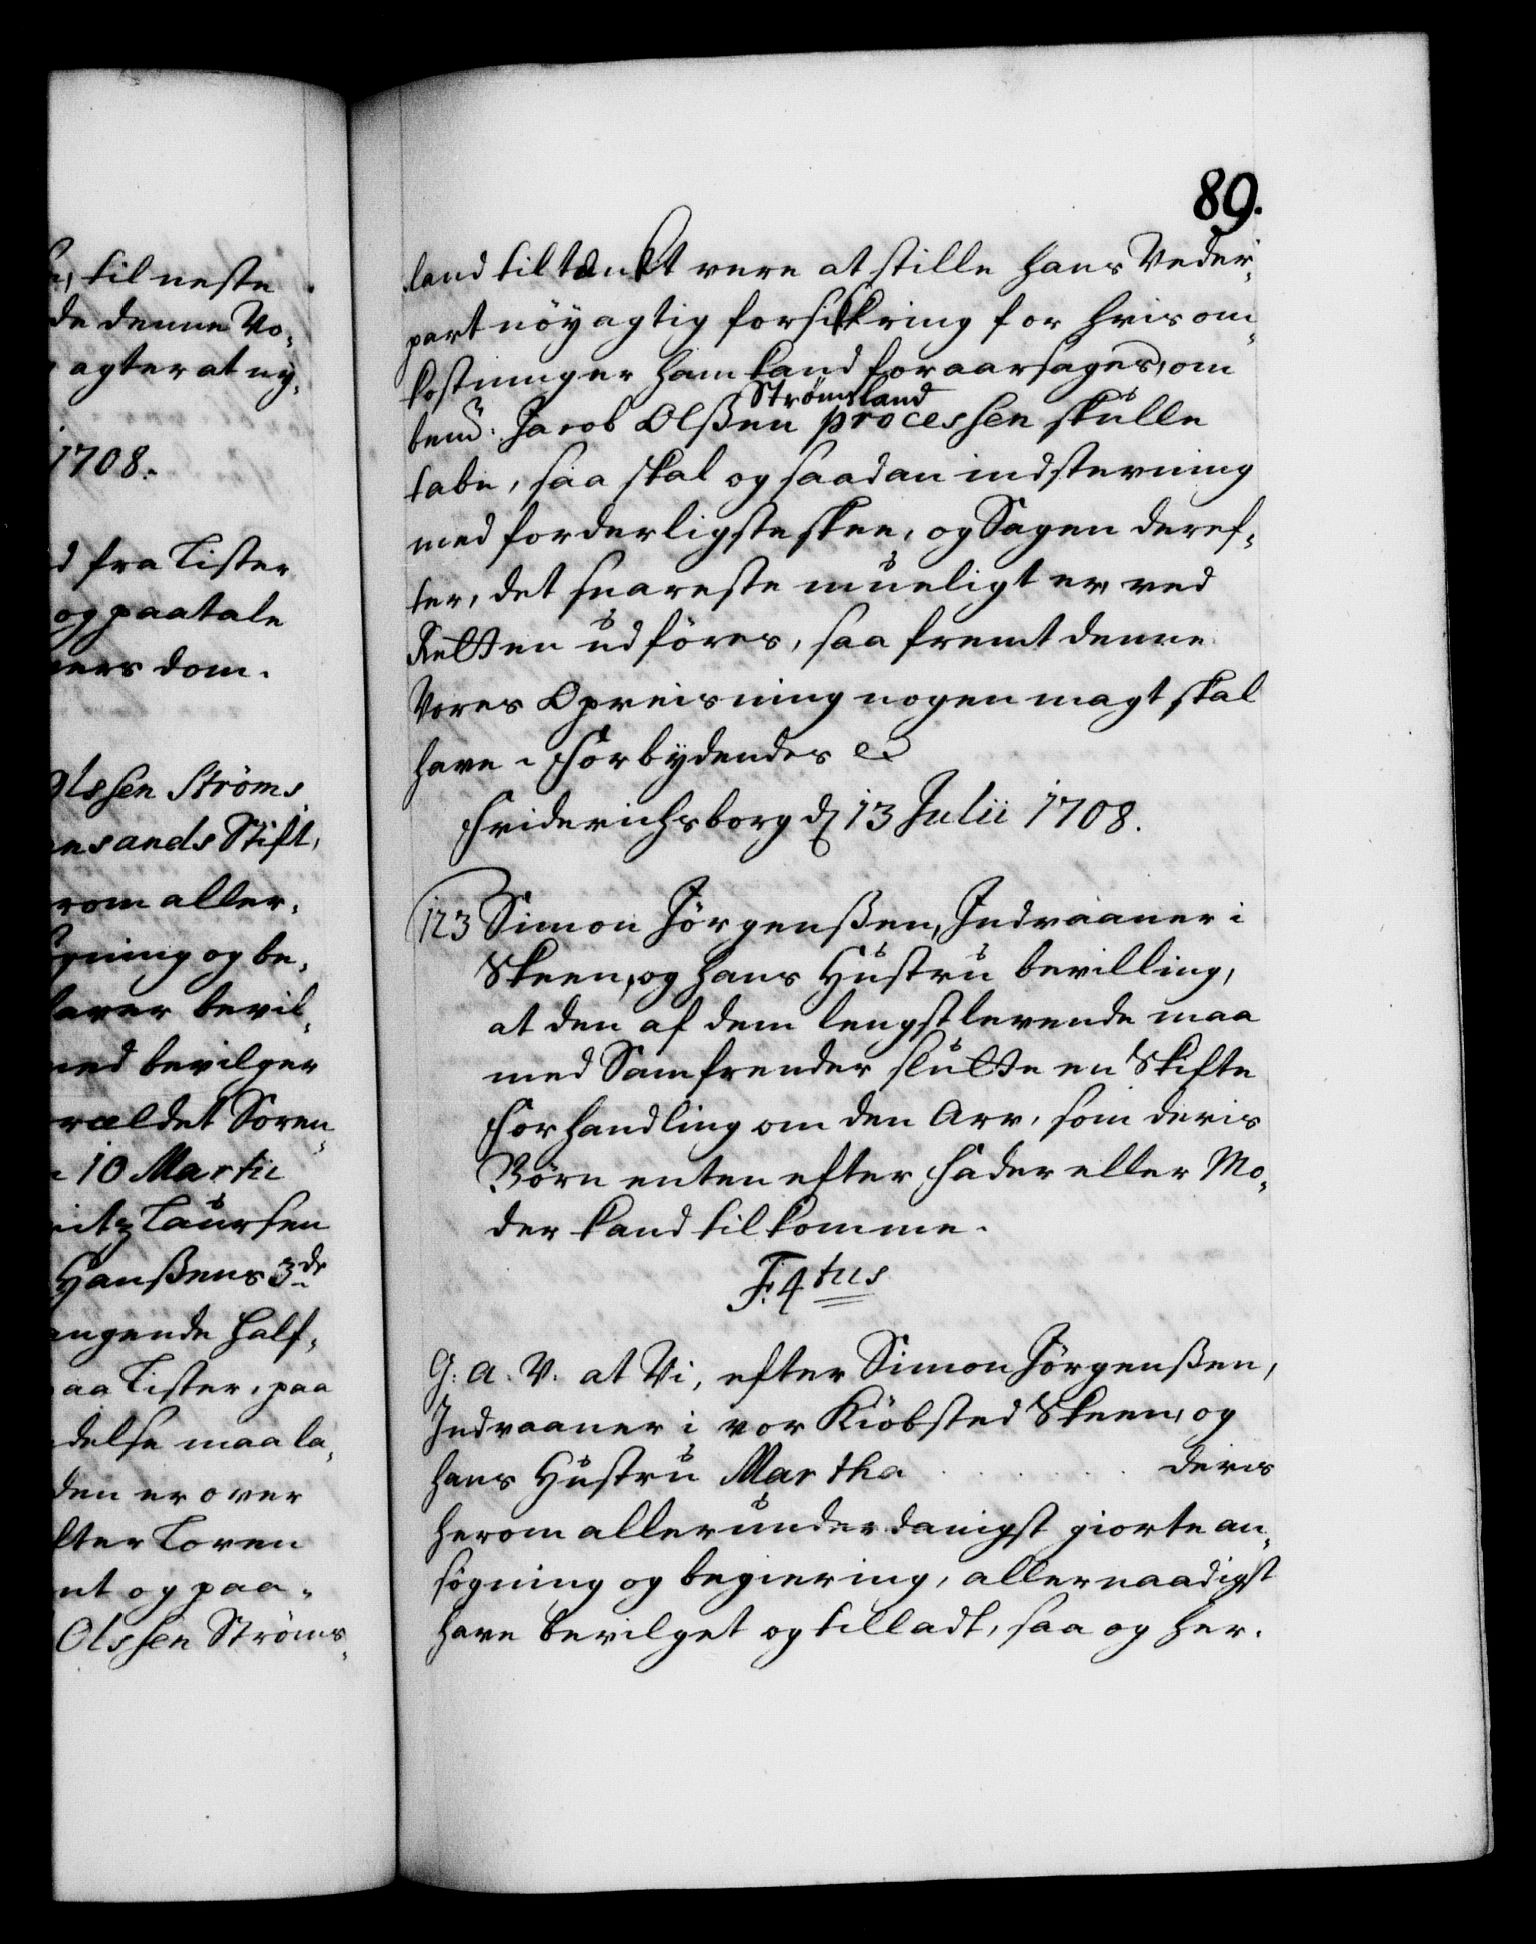 n, til neste
de denne Vo-
agter at ny-
1708.
d fra Lister
og paatale
vers dom.
Olssen Ströms
ensands Stift,
rom aller-
gning og be-
laver bevil-
med bevilger
rældet Soren-
10 Martii
ritz Laursen
Hanßens 3de
angende half-
aa Lister, paa
delse maa la-
den er over
lter Loven
nt og paa-
Olssen Ströms-
89.
land tiltænkt vere at stille hans Veder-
part nöyagtig forsikkring for hvis om-
kostninger ham kand foraarsages, om
Strömsland
bemd: Jacob Olßen processen skulle
tabe, saa skal og saadan indstevning
med forderligste skee, og Sagen deref-
ter, det snareste mueligt er, ved
Retten udföres, saa fremt denne
Vores Opreisning nogen magt skal
have. Forbydendes &
Friderichsborg d. 13 Julii 1708.
123 Simon Jörgenßen, Indvaaner i
Skeen, og hans Hustru bevilling,
at den af dem lengstlevende maa
med Samfrender slutte en Skifte
Forhandling om den Arv, som deris
Börn enten efter Fader eller Mo-
der kand tilkomme.
F. 4tus
G: A. V. at Vi, efter Simon Jörgenßen,
Indvaaner i vor Kiöbsted Skeen, og
hans Hustru Martha . . . . . . deris
herom allerunderdanigst giorte an-
sögning og begiering, allernaadigst
have bevilget og tilladt, saa og her-